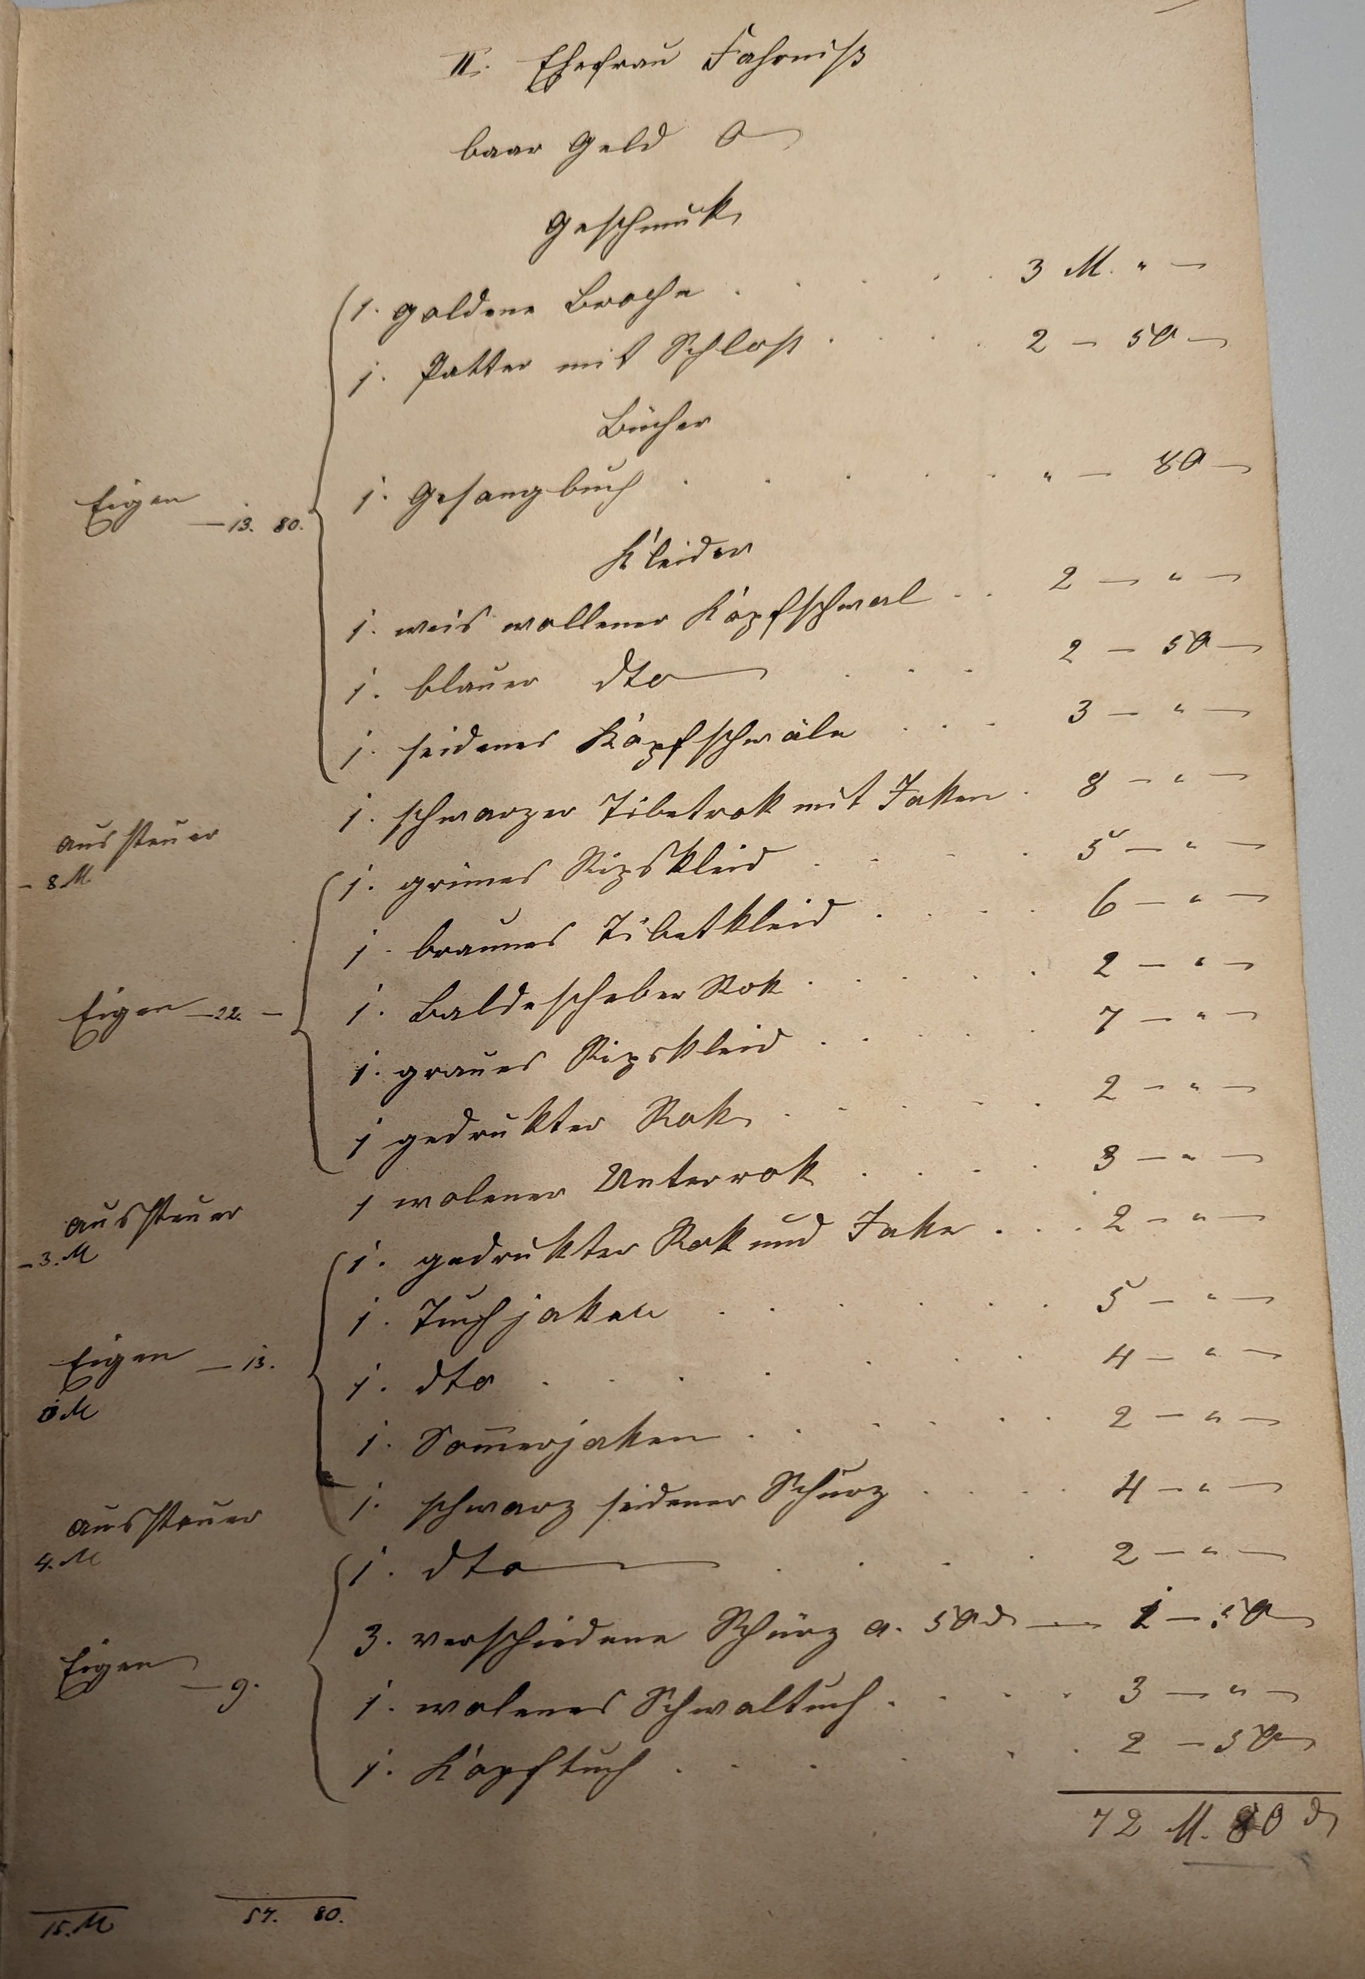 II. Ehefrau Fahrniß
baar Geld 0
Geschmuk
1. goldene Broche . . . . 3 M. " —
1. Patter mit Schloß . . . . 2 — 50 —
Bücher
1. Gesangbuch . . . . " — 80 —
Eigen — 13. 80.
Kleider
1. weis wollener Kopfschwal . . 2 — " —
1. blauer dto . . . 2 — 50 —
1. seidenes Kopfschwäle . . . 3 — " —
1. schwarzer Tibetrok mit Jaken . 8 — " —
aussteuer
— 8 M
1. grünes Ripskleid . . . . 5 — " —
1. braunes Tibetkleid . . . . 6 — " —
1. Rok . . . . 2 — " —
Eigen — 22. —
1. graues Ripskleid . . . . 7 — " —
1 gedrukter Rok . . . . 2 — " —
1 wolener Unterrok . . . . 3 — " —
aussteuer
— 3. M
1. gedrukter Rok und Jake . . . 2 — " —
1. Tuchjaken . . . . 5 — " —
1. dto . . . . 4 — " —
Eigen — 13.
1. Som̅erjaken . . . . 2 — " —
1. schwarz seidener Schurz . . . . 4 — " —
aussteuer
4. M
1. dto . . . . 2 — " —
3. verschiedene Schürz a. 50 ₰ — 1 — 50
1. wolenes Schwaltuch . . . . 3 — " —
Eigen — 9.
1. Kopftuch . . . . 2 — 50
72 M. 80 ₰
15. M 57. 80.